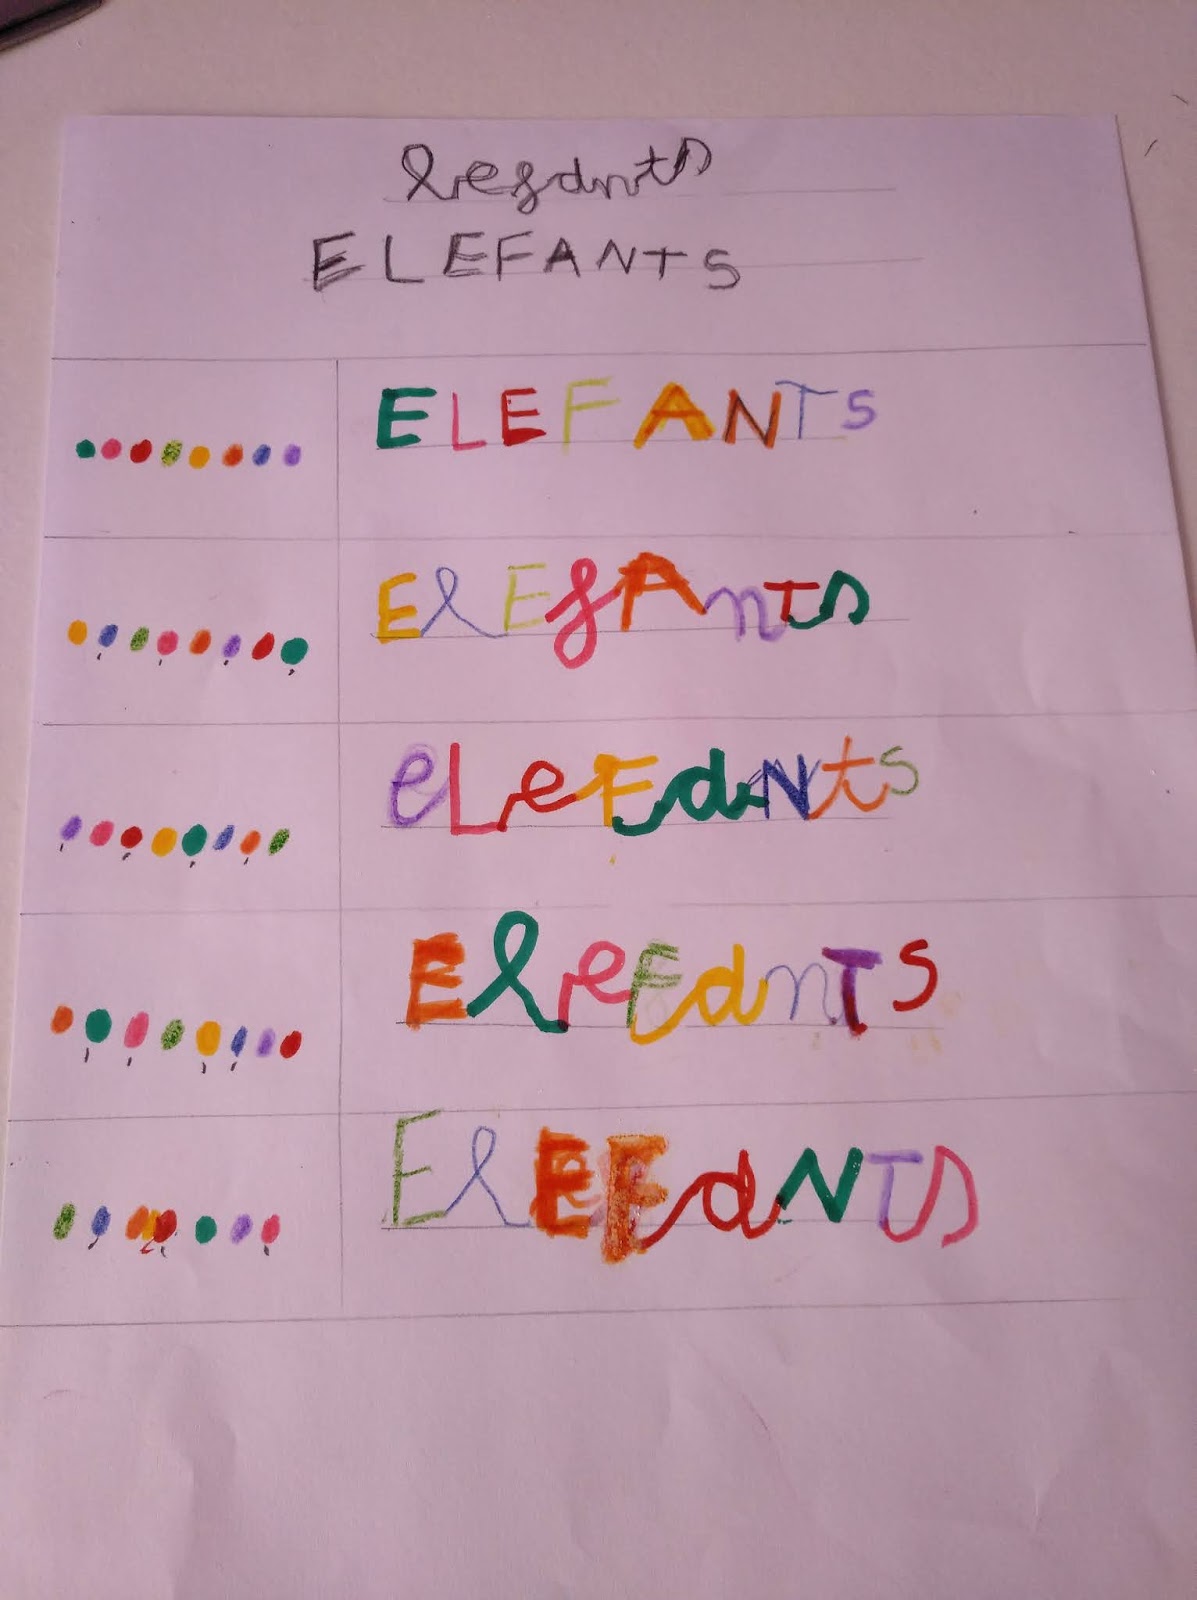 lefants
ELEFANTS
ELEFANTS
ElEfAnTs
eLeFaNts
EleFanTS
ElEFaNTs